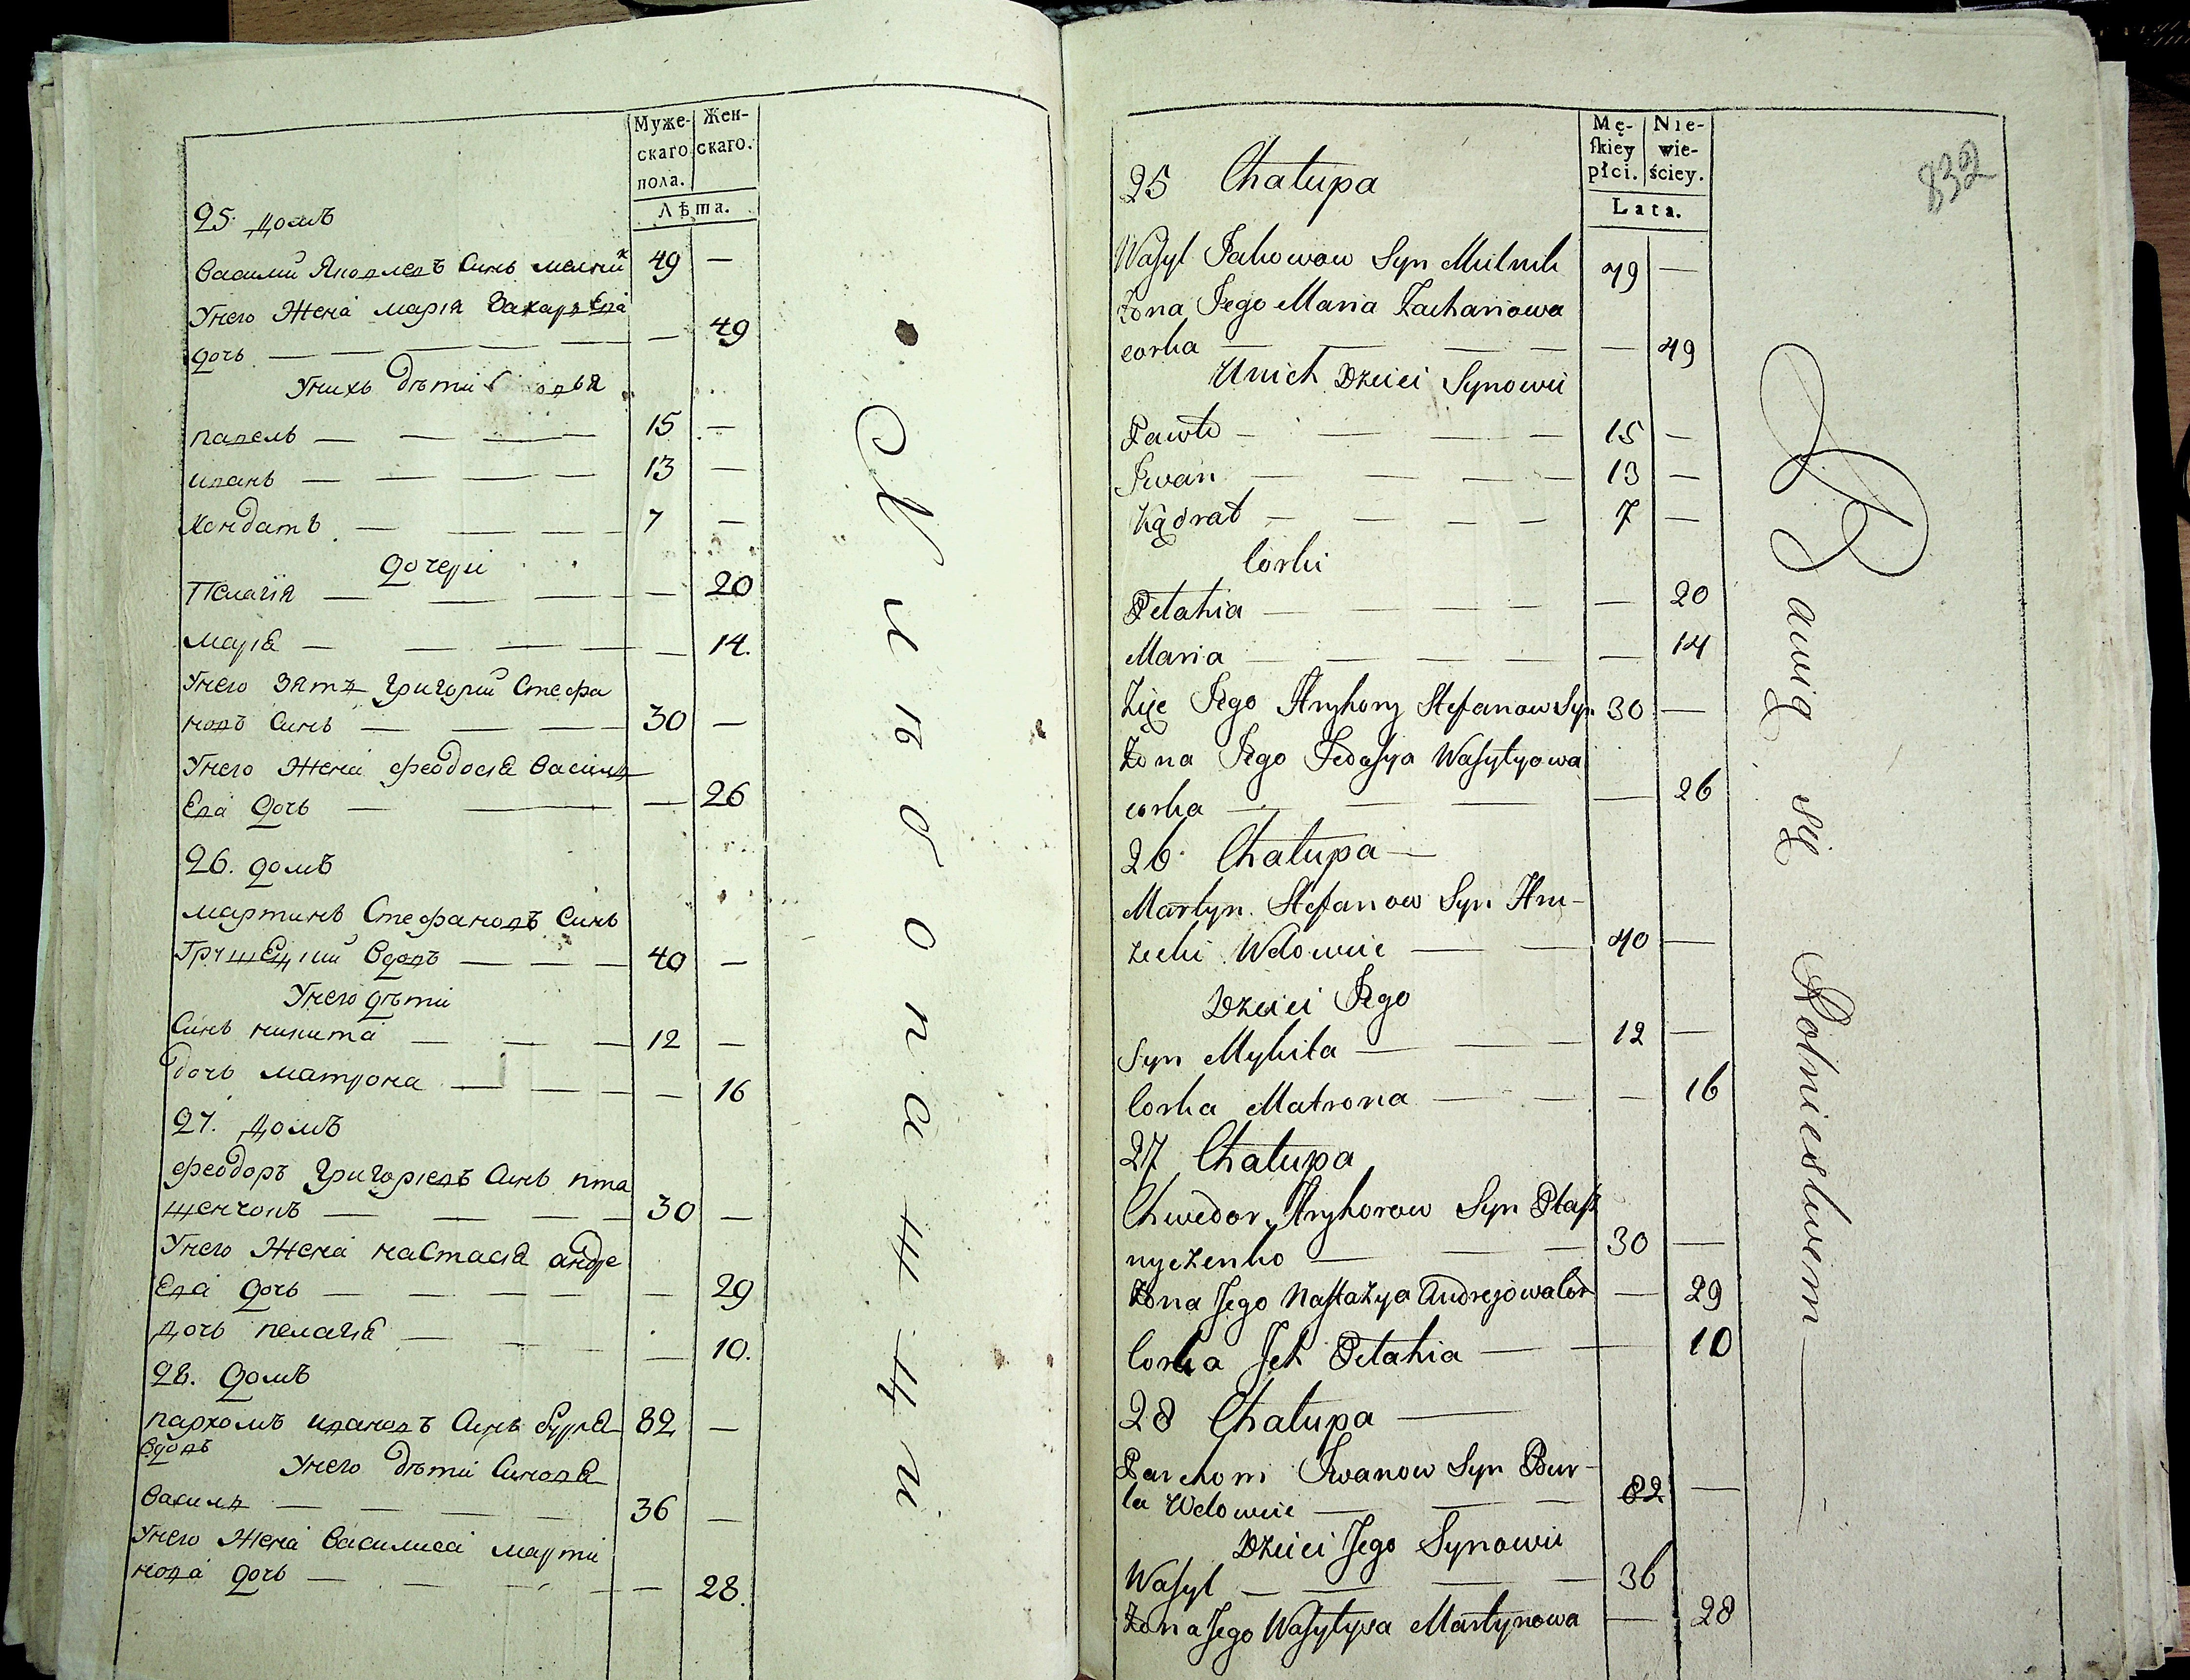 Муже-
скаго
пола.
Жен-
скаго.
Лѣта.
25. домъ
Василий Яковлевъ Синъ мелник 49 —
Унего Жена мария Захар Ева
дочь — — — — — — 49
Унихъ дѣти
павелъ — — — — 15 —
иванъ — — — — 13 —
Кондатъ — — — 7 —
дочери
Пелагїя — — — — 20
марїя — — — — — 14.
Унего Зять Григорий Стефа
новъ Синъ — — — 30 —
Унего Жена феодосїя Васил
Ева дочь — — — 26
26. домъ
мартинъ Стефановъ Синъ
Вдовъ — — — 40 —
Унего дѣти
Синъ никита — — — 12 —
дочь матрона — — — — 16
27. домъ
феодоръ Григорїевъ Синъ пта
шенчонъ — — — — 30 —
Унего Жена настасїя андре
Ева дочь — — — — — 29
дочь пелагїя — — — 10.
28. домъ
пархомъ ивановъ Синъ бурла 82 —
Вдовъ
Унего дѣти Синовя
Василь — — — 36 —
Унего Жена Василиса марти
нова дочь — — — — — 28.
Хлибопашци
Mę-
ſkiey
płci.
Nie-
wie-
ściey.
Lata.
832
25 Chałupa
Waſyl Jakowow Syn Mielnik 49 —
Żona Jego Maria Zachariowa
corka — — — — — 49
Unich Dzieci Synowie
Pawło — — — — 15 —
Iwan — — — — 13 —
Kądrat — — — — 7 —
Corki
Pełahia — — — — — 20
Maria — — — — — 14
Zięc Jego Hryhory Stefanow Syn 30 —
Żona Jego Fedoſya Waſylyowa
corka — — — — 26
26 Chałupa —
Martyn Stefanow Syn Hru-
zecki Wdowiec — — 40 —
Dzieci Jego
Syn Mykita — — — 12 —
Corka Matrona — — — 16
27 Chałupa
Chwedor Hryhorow Syn Ptaſz
nyczenko — — — 30 —
Żona Jego Naſtazya Andrejowa Cor — 29
Corka Jch Pełahia — — 10
28 Chałupa —
Parchom Iwanow Syn Bur-
la Wdowiec — — — 82 —
Dzieci Jego Synowie
Waſyl — — — — 36
Żona Jego Waſylyſa Martynowa — 28
Bawią się Rolnictwem —